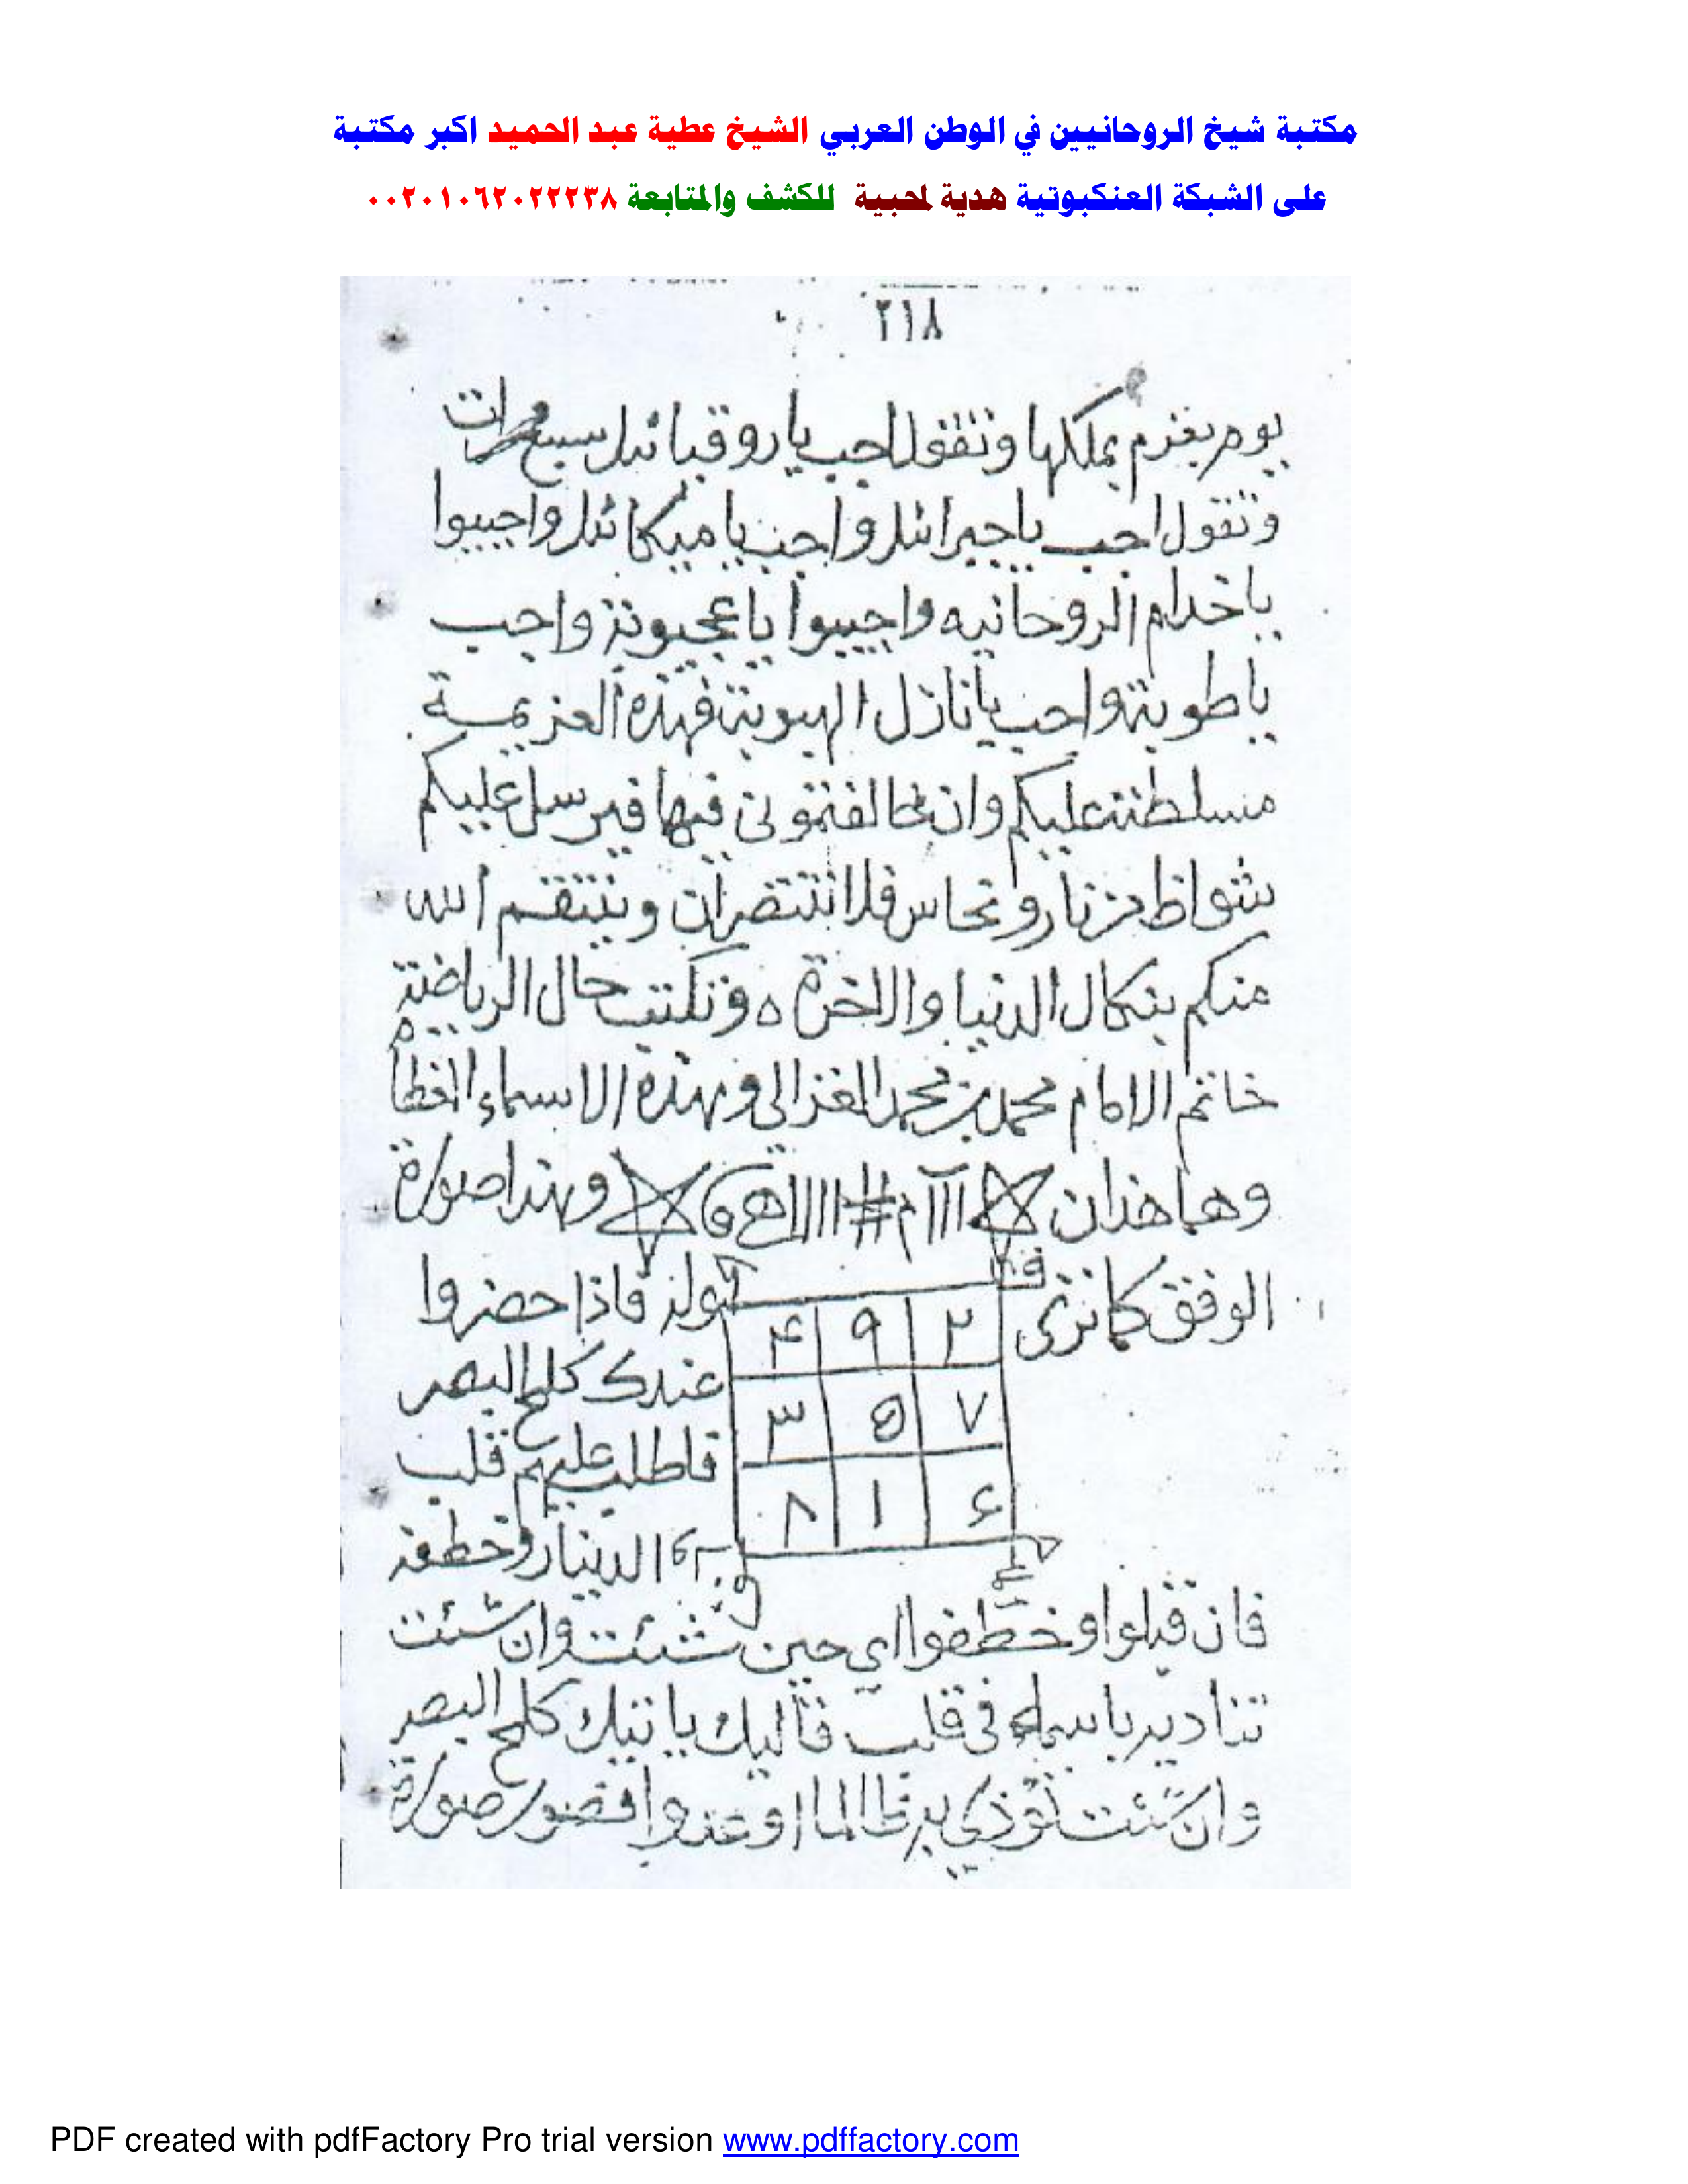 مكتبة شيخ الروحانيين في الوطن العربي الشيخ عطية عبد الحميد اكبر مكتبة
على الشبكة العنكبوتية هدية لمحبية للكشف والمتابعة ٠٠٢٠١٠٦٢٠٢٢٢٣٨
٢١٨
يوم بعزم بملكها وتقول اجب يا روقيائيل سبع مرات
وتقول اجب يا جبرائيل واجب يا ميكائيل واجيبوا
يا خدام الروحانيه واجيبوا يا واجب
يا واجب يا نازل فهذه العزيمة
مسلطنة عليكم وان خالفتموني فيها فيرسل عليكم
شواظ من نار ونحاس فلا تنتصران وينتقم الله
منكم بنكال الدنيا والاخرة ه وتكتب حال الرياضة
خاتم الامام محمد بن محمد الغزالي وبهذه الاسماء
وها هذان وهذا صورة
الوفق كما ترى فاذا حضروا
٢ ٩ ۴
عندك كلمح البصر
٧ ۵ ٣
فاطلب عليهم قلب
۶ ١ ٨
الدينار وخطفه
فان قبلوا وخطفوا اي حين شئت وان شئت
تناديه باسمه في قلب يأتيك كلمح البصر
وان شئت تؤذي به ظالما او عدوا فصور صورة
PDF created with pdfFactory Pro trial version www.pdffactory.com